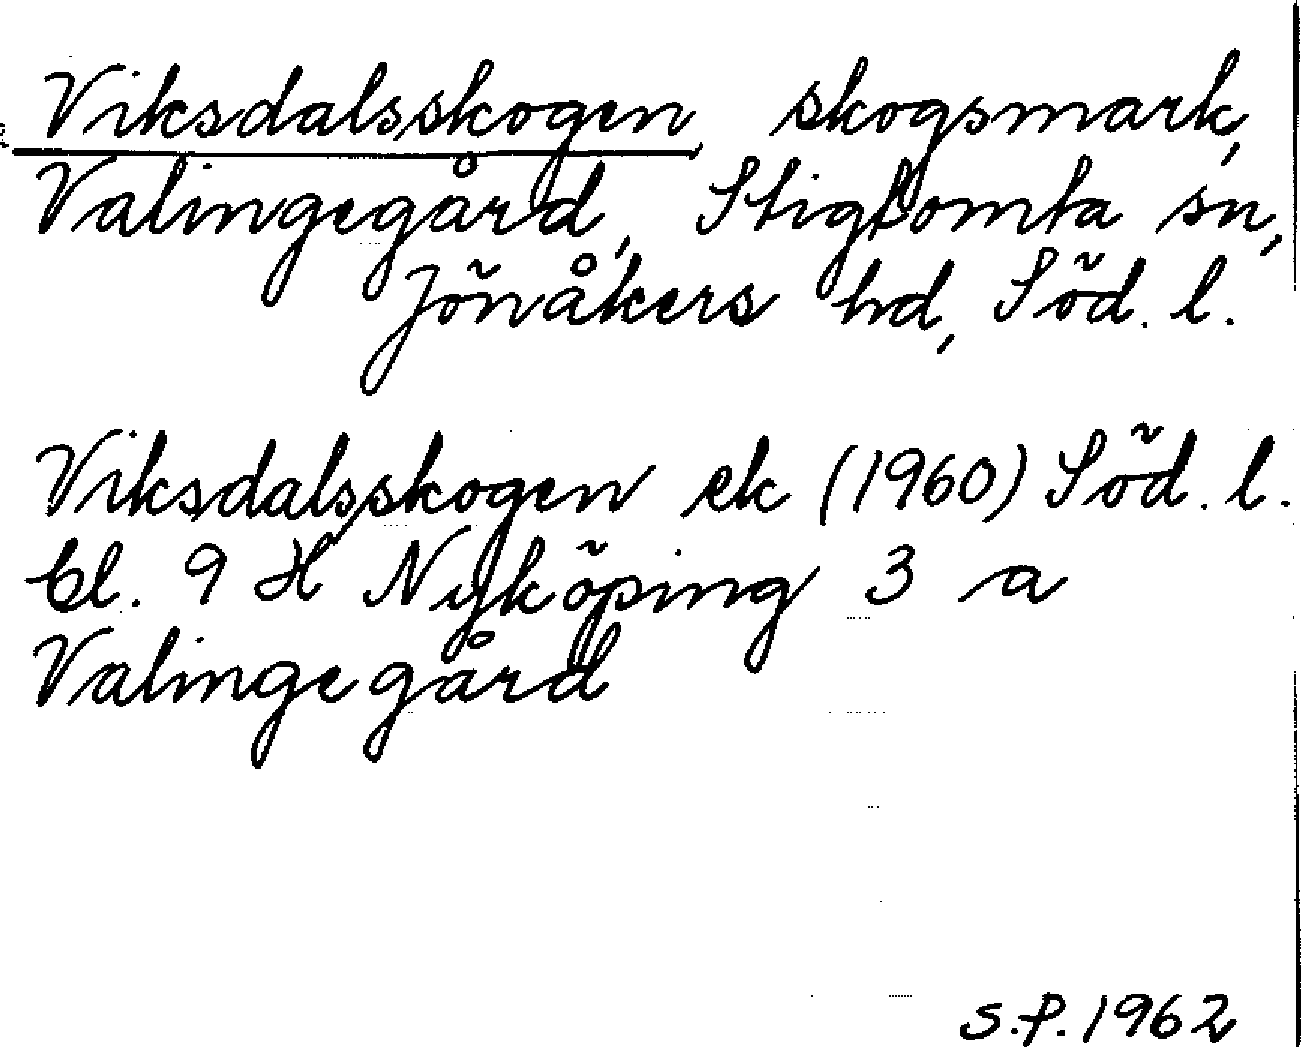 Viksdalsskogen skogsmark,
Valingegård, Stigtomta sn,
Jönåkers hd, Söd. l.
Viksdalsskogen ek (1960) Söd. l.
bl. 9 H Nyköping 3 a
Valingegård
S.P. 1962